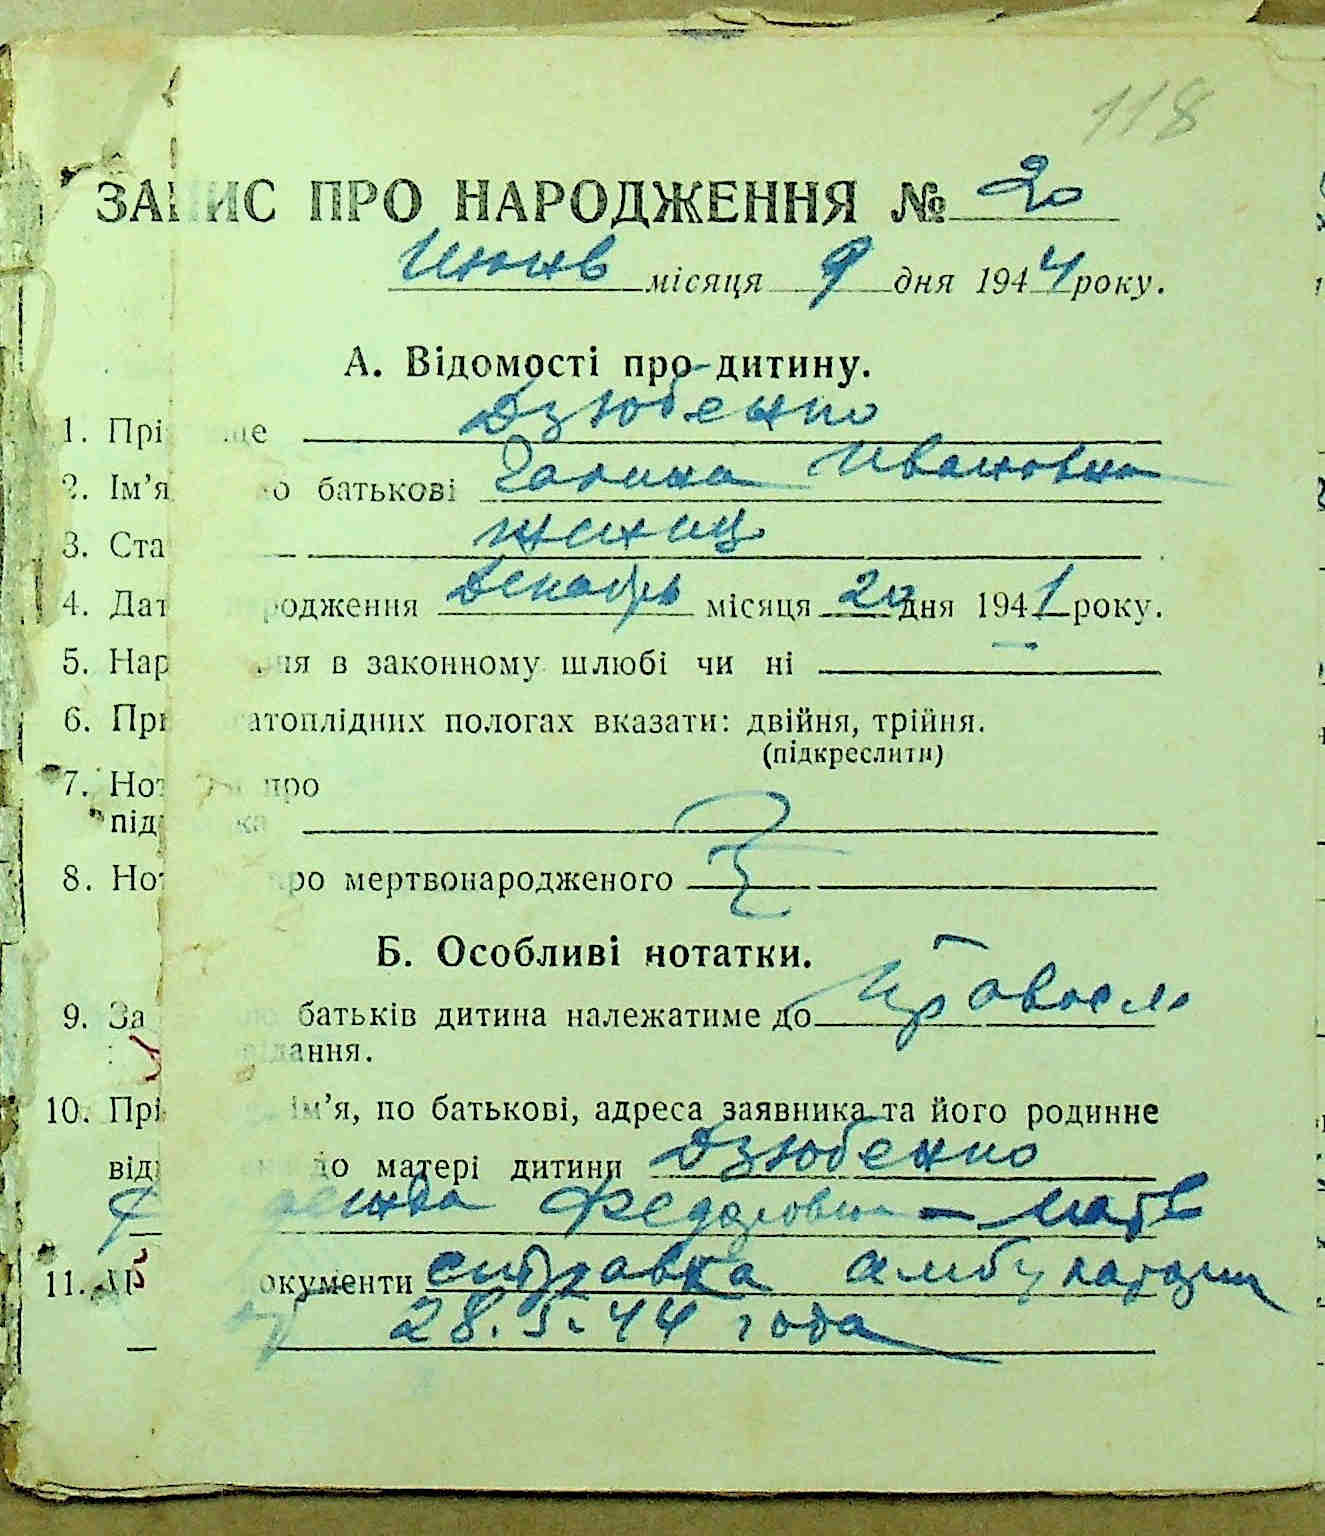 118
ЗАПИС ПРО НАРОДЖЕННЯ № 20
Июнь місяця 9 дня 1944 року.
А. Відомості про дитину.
1. Прі ще Дзюбенко
2. Ім’я по батькові Галина Ивановна
3. Ста женщ
4. Дат народження Декабрь місяця 20 дня 1941 року.
5. Нар ння в законному шлюбі чи ні —
6. При атоплідних пологах вказати: двійня, трійня.
(підкреслити)
7. Нот про
під ка
8. Нот про мертвонародженого
Б. Особливі нотатки.
9. За батьків дитина належатиме до Правосл
ідання.
10. Прі ім’я, по батькові, адреса заявника та його родинне
від до матері дитини Дзюбенко
Федоровна — мать
11. окументи справка амбулатории
28.5.44 года